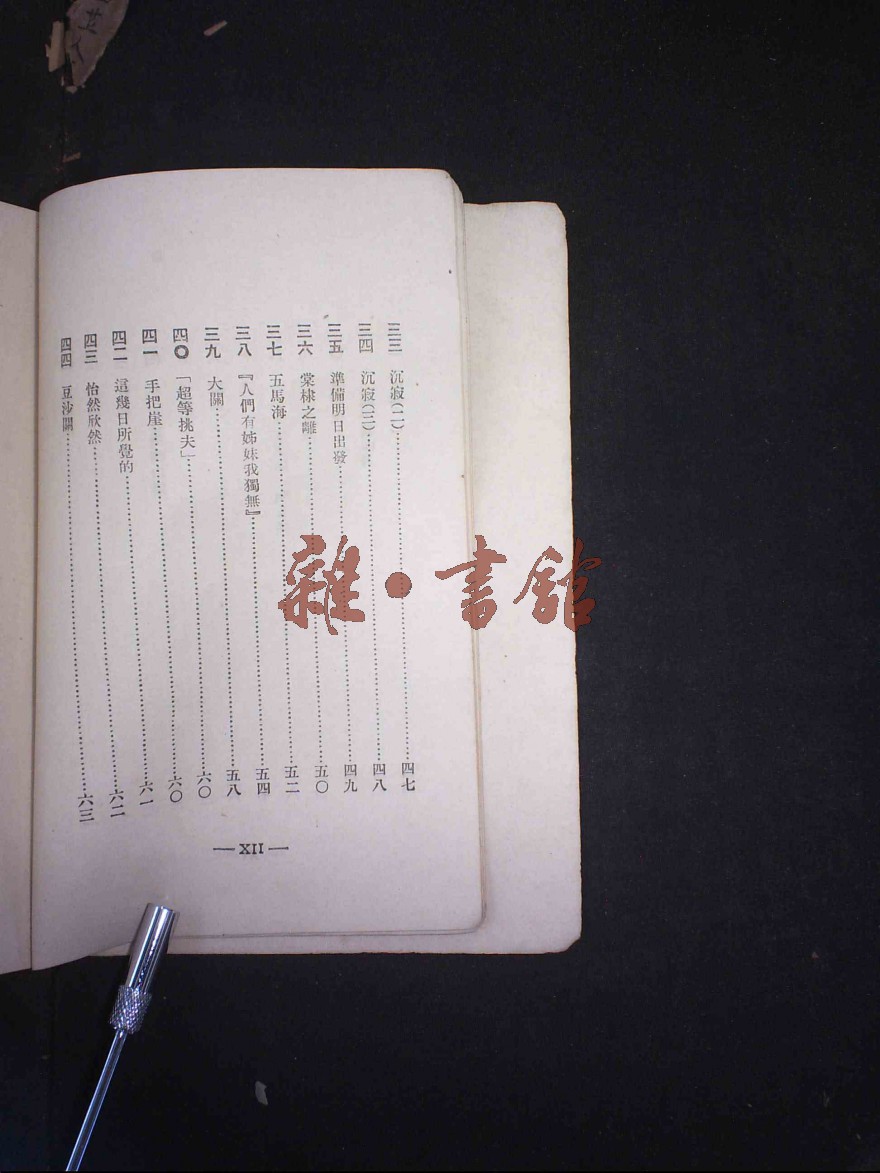 三三 沉寂(二)……四七
三四 沉寂(三)……四八
三五 準備明日出發……四九
三六 棠棣之離……五〇
三七 五馬海……五二
三八 『人們有姊妹我獨無』……五四
三九 大關……五八
四〇 「超等挑夫」……六〇
四一 手把崖……六〇
四二 這幾日所覺的……六一
四三 怡然欣然……六二
四四 豆沙關……六三
— XII —
雜·書館